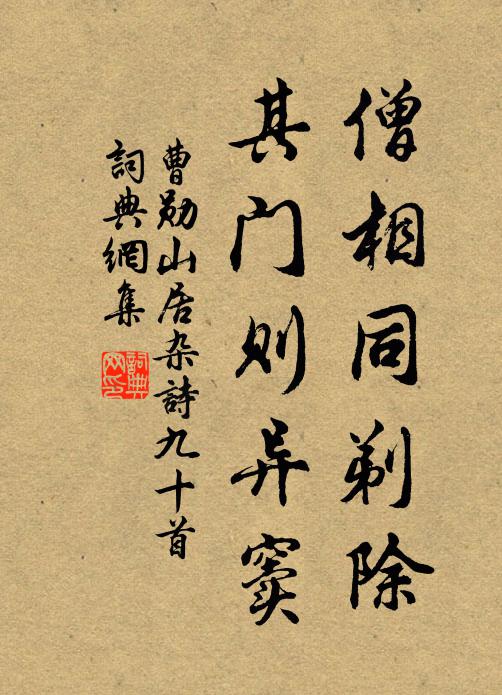 僧相同剃除
其门则异窦
曹勋山居杂詩九十首
詞典網集
詞典
网印